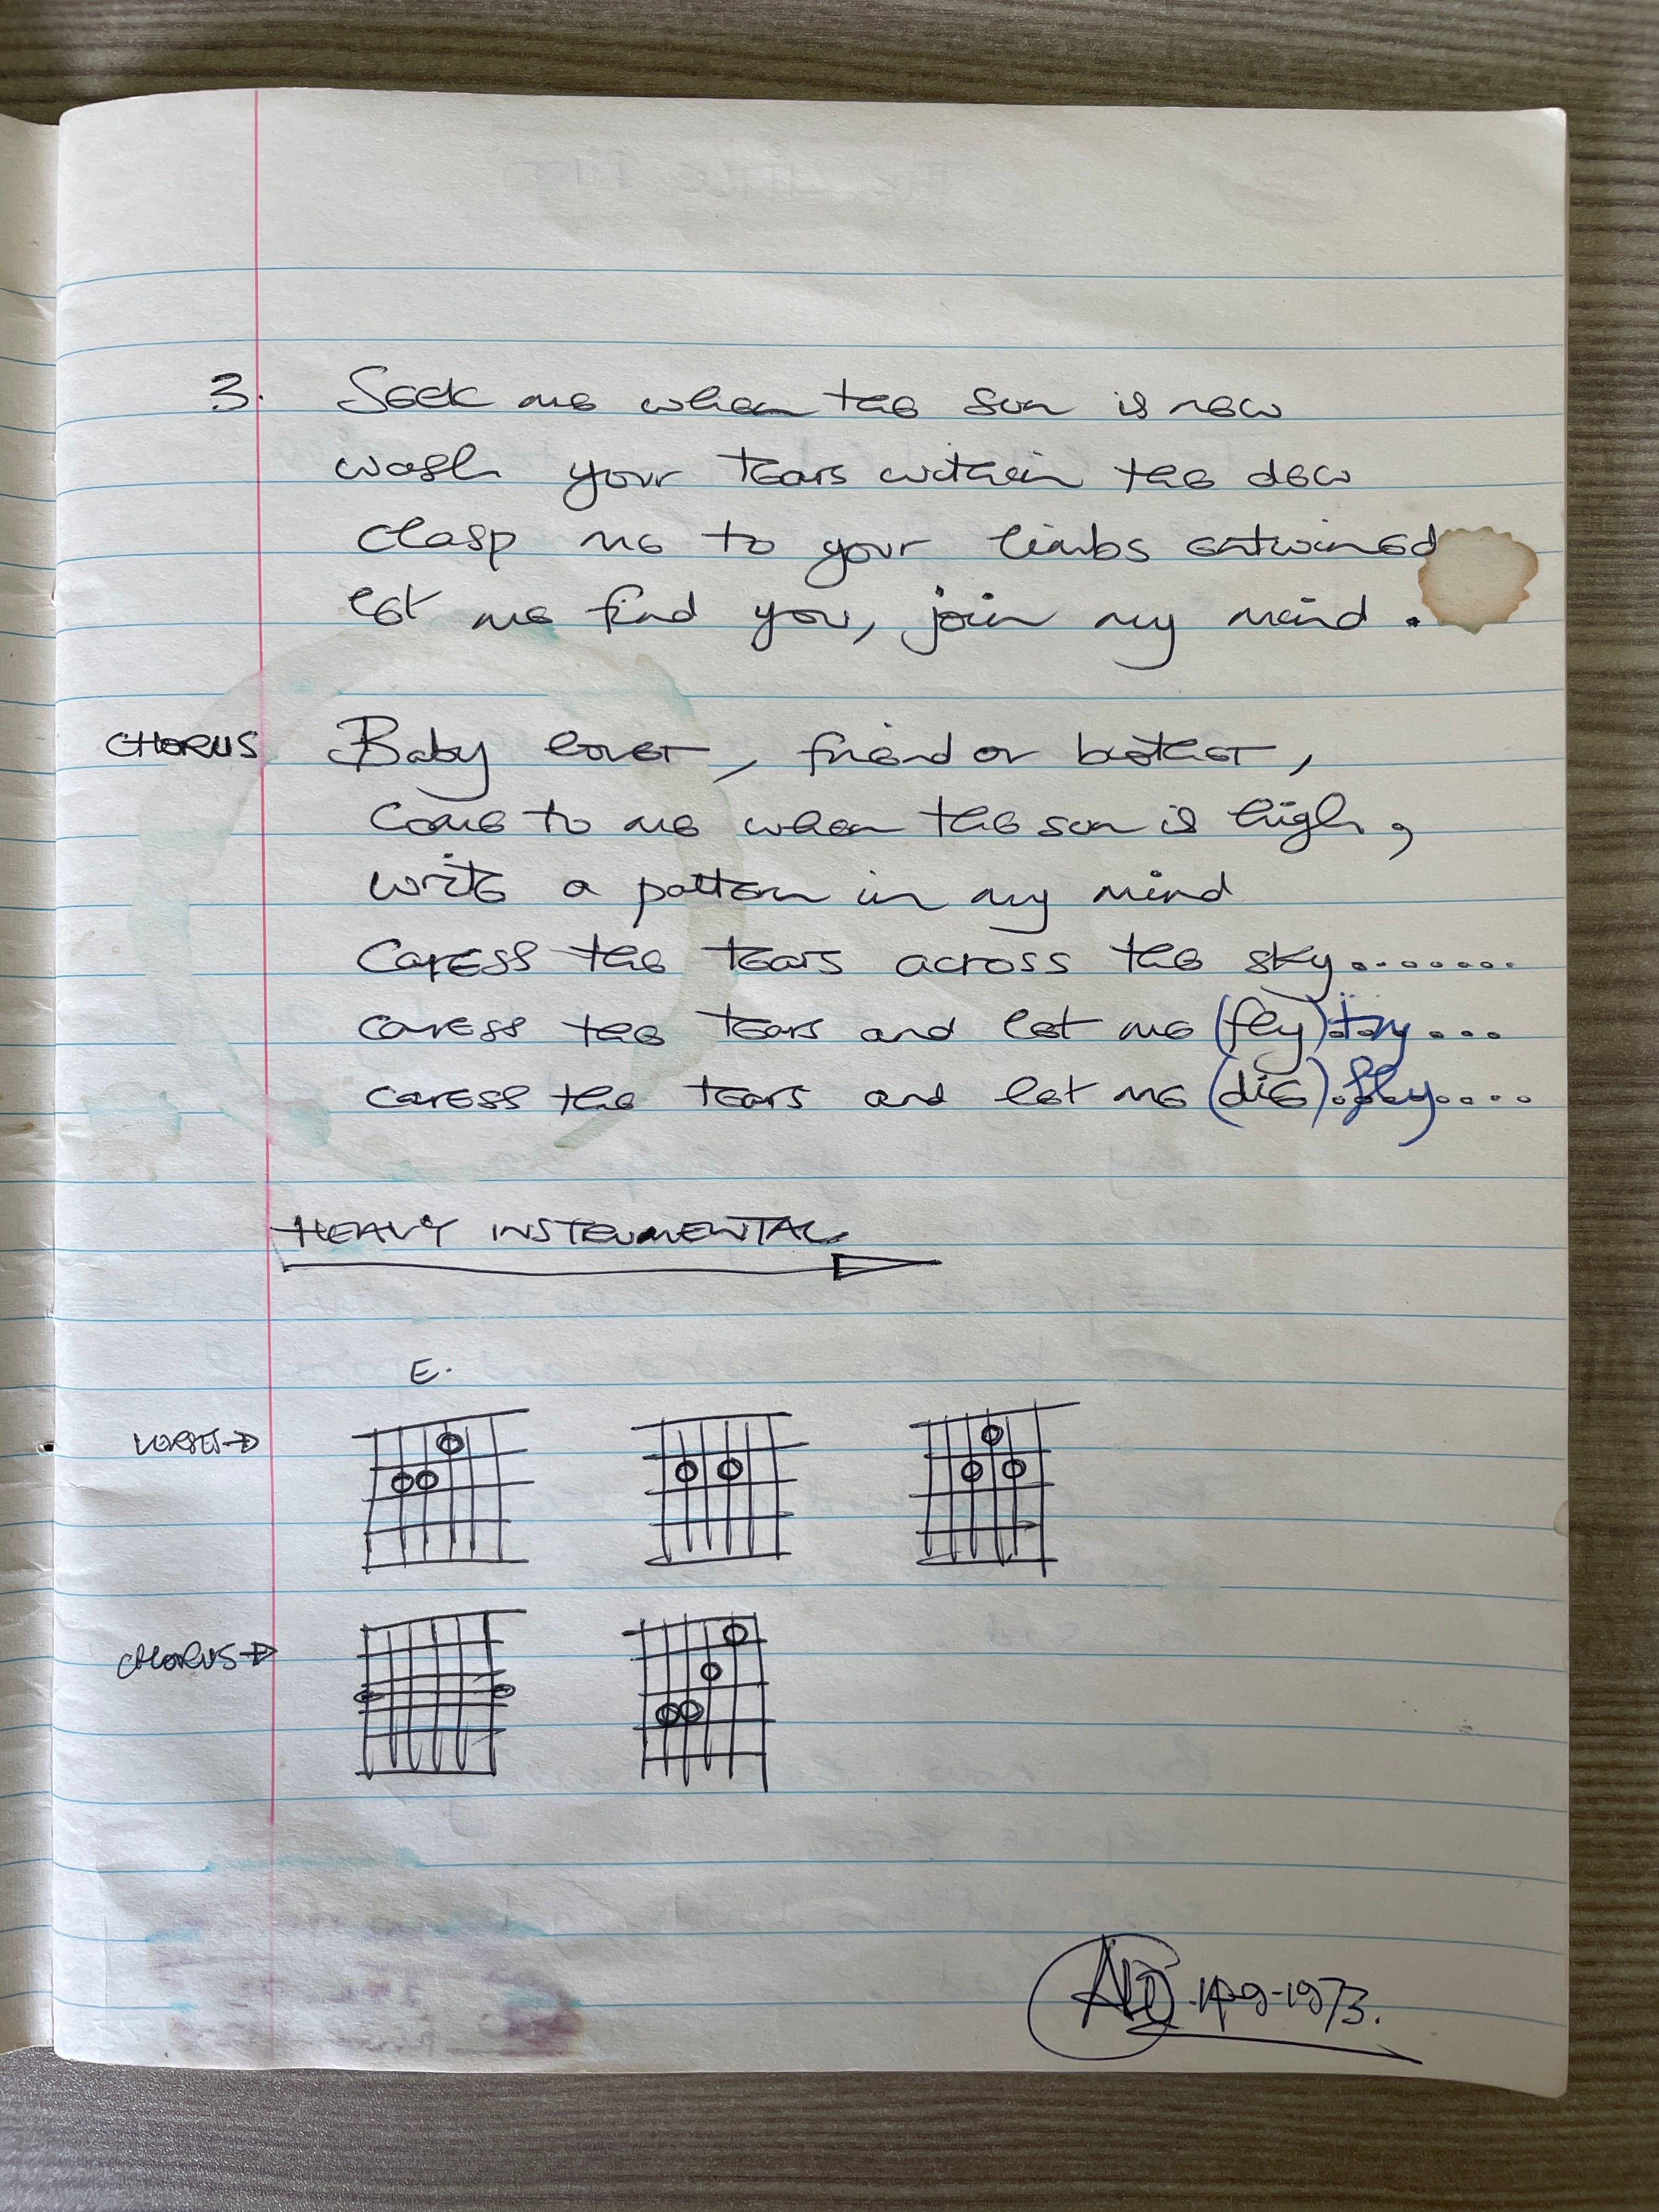 3. Seek me when the sun is new
wash your tears within the dew
clasp me to your limbs entwined
let me find you, join my mind.
CHORUS Baby lover, friend or brother,
Come to me when the sun is high,
write a pattern in my mind
Caress the tears across the sky........
caress the tears and let me (fly) try...
caress the tears and let me (die) fly....
HEAVY INSTRUMENTAL
E.
VERSES
CHORUS
9-1973.